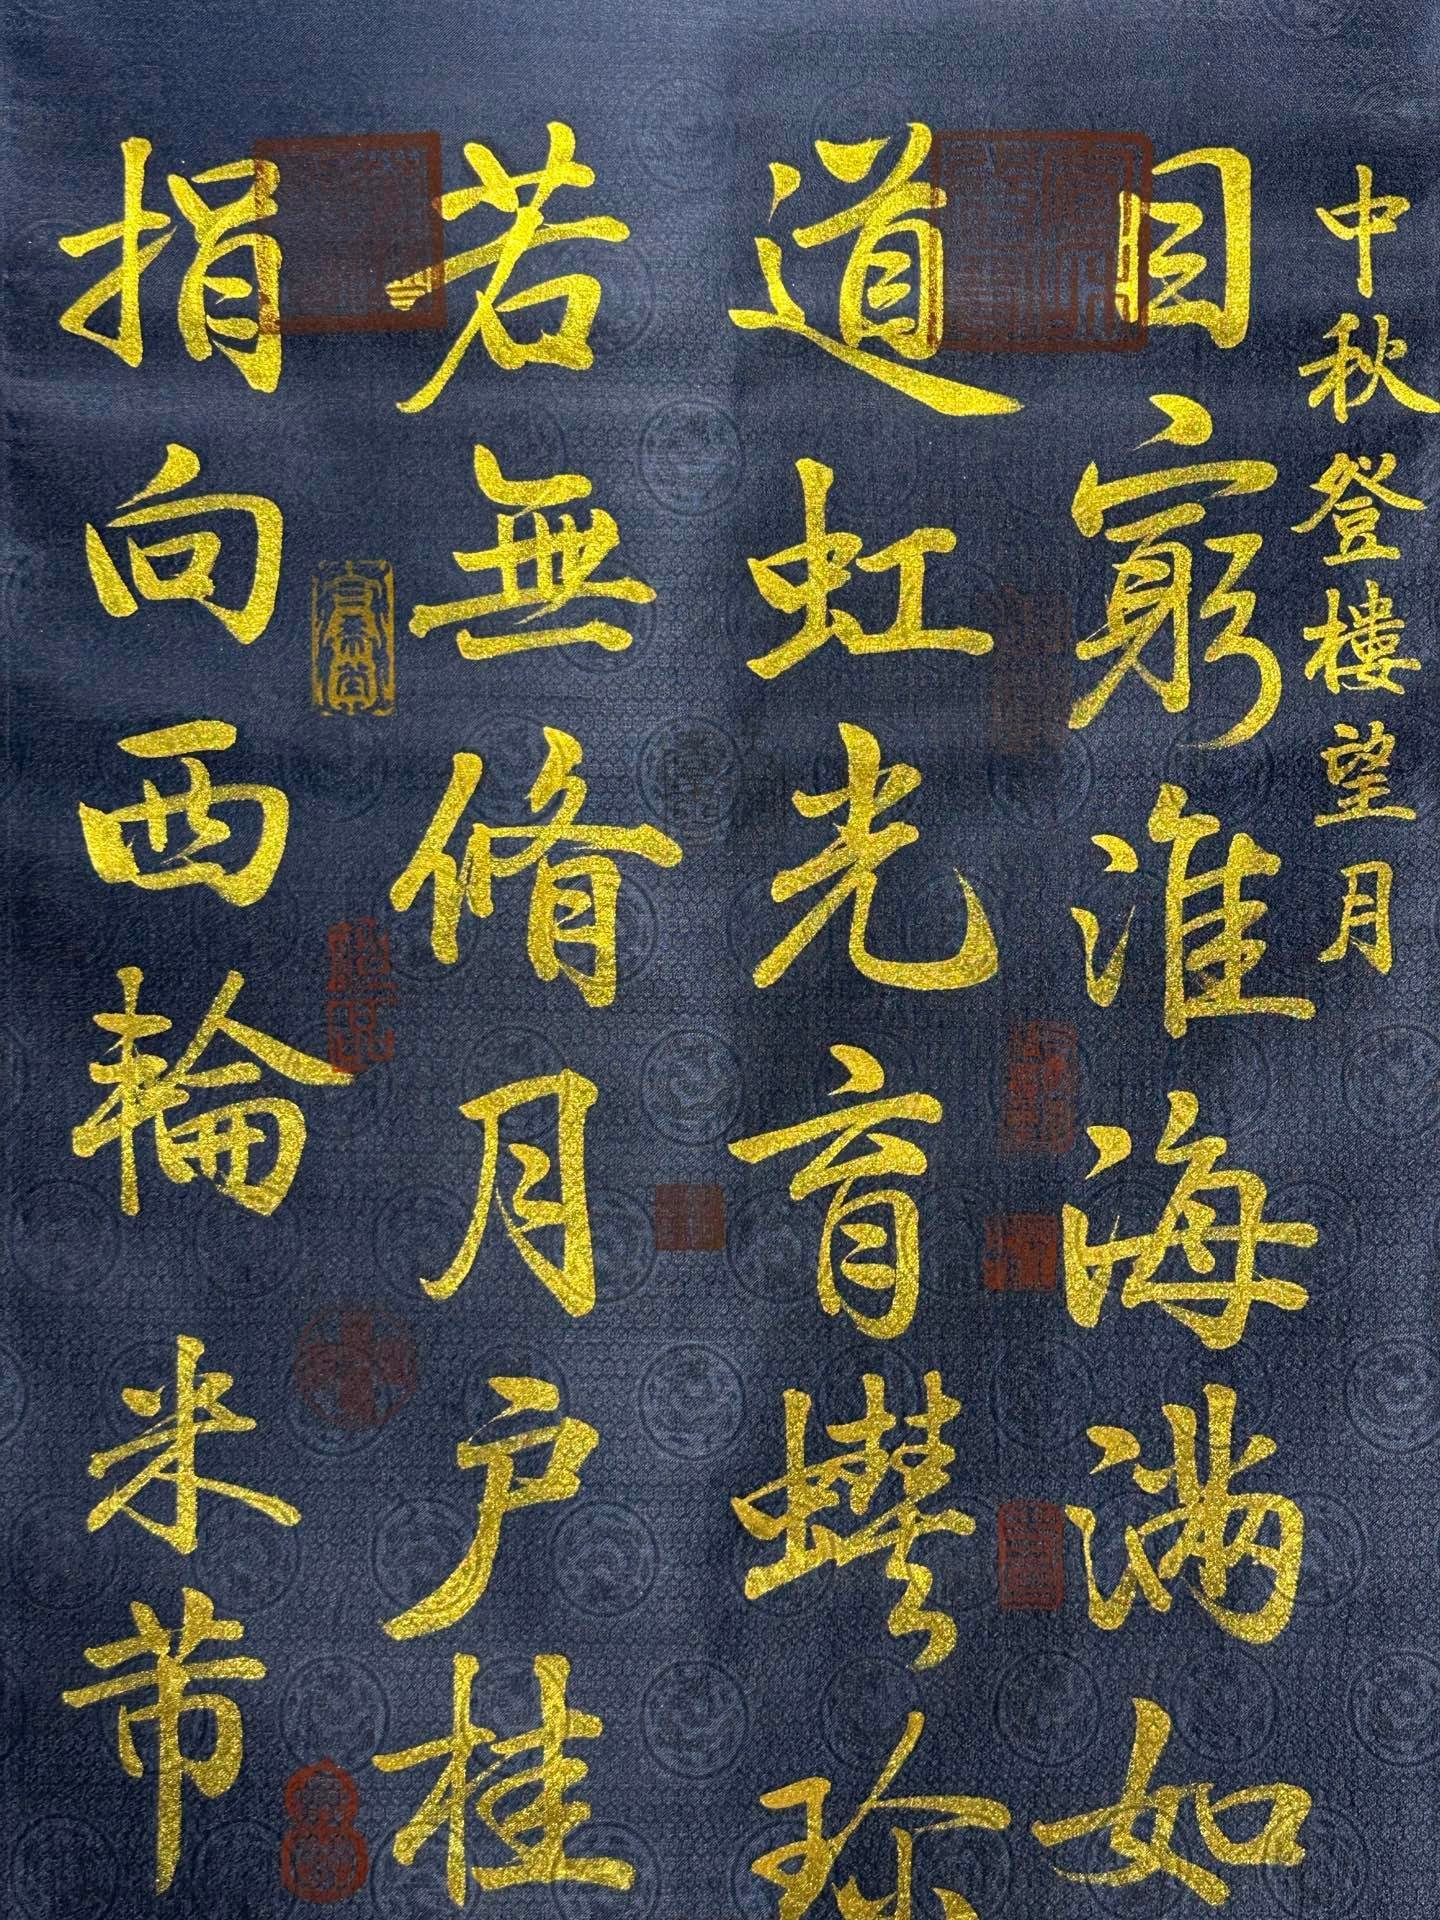 中秋登樓望月
目窮淮海滿如
道虹光育蚌珍
若無脩月户桂
捐向西輪
米芾